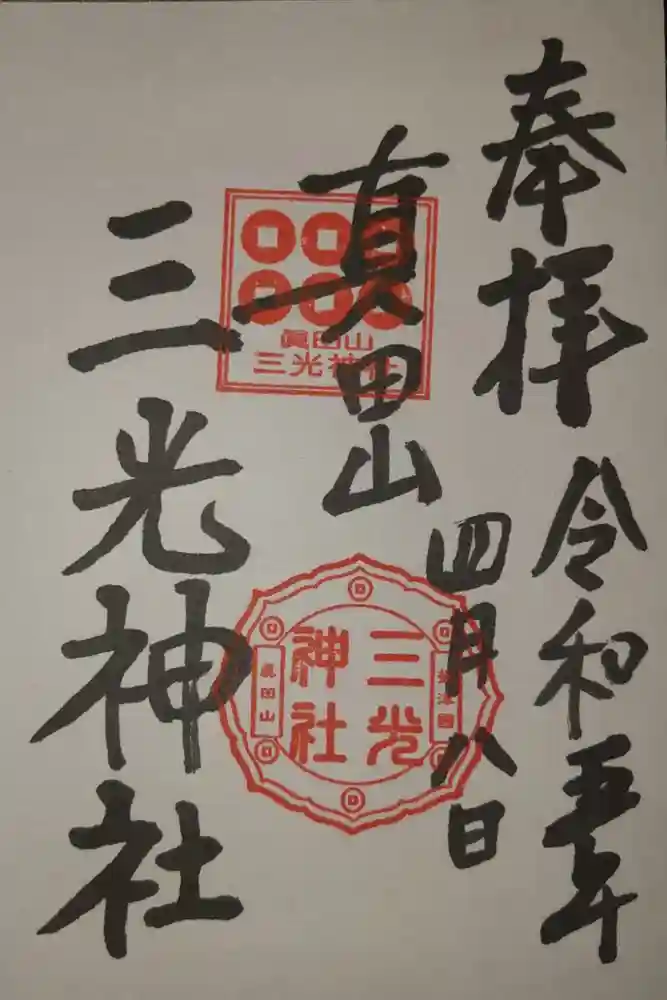 奉拝
令和五年
四月八日
真田山
三光神社
眞田山
三光神社
三光
神社
眞田山